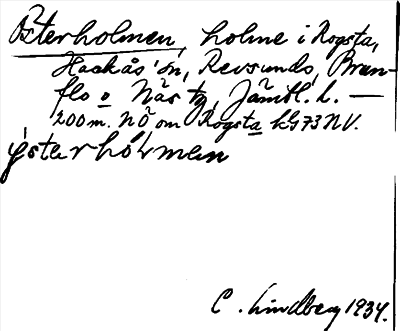 Österholmen, holme i Rogsta,
Hackås' sn, Revsunds, Brun-
flo o Näs tg, Jämtl. l. —
200 m. NÖ om Rogsta kG73NV.
ÿsterhólmen
C. Lindberg 1934.